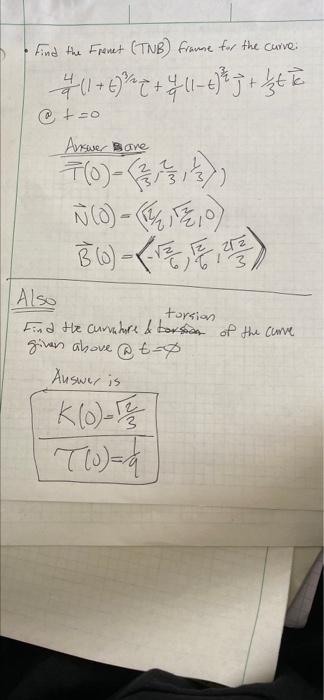 • Find the Frenet (TNB) frame for the curve:
4/9(1+t)^{3/2} i⃗ + 4/9(1-t)^{3/2} j⃗ + 1/3 t k⃗
@ t=0
Answer are
T⃗(0)=⟨2/3, 2/3, 1/3⟩,
N⃗(0)=⟨√2/2, √2/2, 0⟩
B⃗(0)=⟨-√2/6, √2/6, 2√2/3⟩
Also
torsion
Find the curvature & of the curve
given above @ t=∅
Answer is
K(0)=√2/3
T(0)=1/9